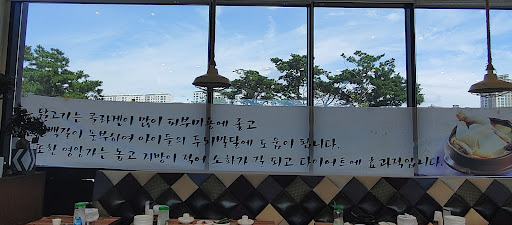 닭고기는 콜라겐이 많아 피부미용에 좋고
단백질이 높아 아이들의 두뇌발달에 도움이 됩니다.
또한 영양가는 높고 지방이 적어 소화가 잘 되고 다이어트에 효과적입니다.